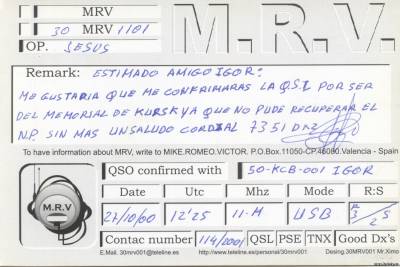 MRV
30 MRV 1101
OP. JESUS
M.R.V.
Remark: ESTIMADO AMIGO IGOR:
ME GUSTARIA QUE ME CONFIRMARAS LA QSL POR SER
DEL MEMORIAL DE KURSK YA QUE NO PUDE RECUPERAR EL
N.P. SIN MAS UN SALUDO CORDIAL 73 51 DXZ
To have information about MRV, write to MIKE.ROMEO.VICTOR. P.O.Box.11050-CP.46080.Valencia - Spain
M.R.V
QSO confirmed with 50-KCB-001 IGOR
Date Utc Mhz Mode R:S
27/10/00 12'25 11-M USB R3 S5
Contac number 114/2001 QSL PSE TNX Good Dx's
E.Mail. 30mrv001@teleline.es http://www.teleline.es/personal/30mrv001 Desing.30MRV001 Mr.Ximo